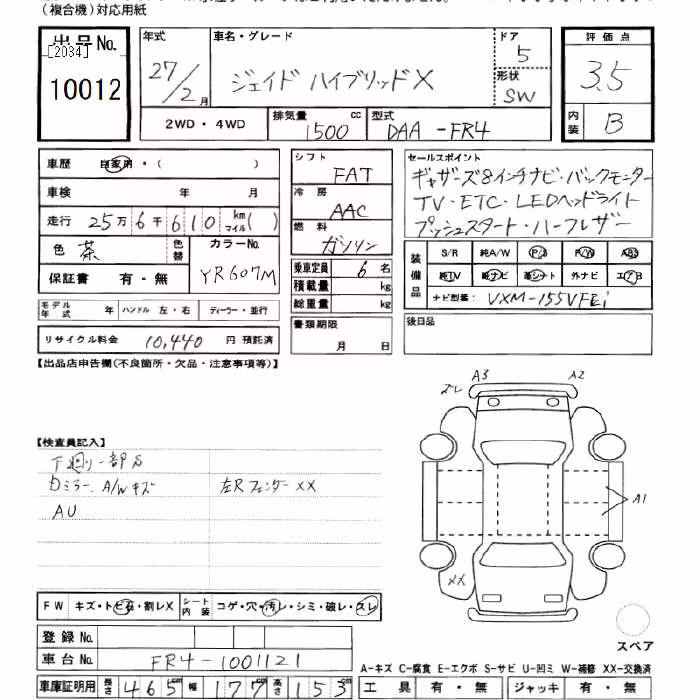 (複合機)対応用紙
出品No.
[2034]
10012
年式 27/2月
車名・グレード
ジェイド ハイブリッドX
ドア 5
形状 SW
評価点
3.5
内装 B
2WD・4WD 排気量 1500 cc 型式 DAA-FR4
車歴 自家用・( )
車検 年 月
走行 25万6千610 km マイル( )
色 茶 色替 カラーNo. YR607M
保証書 有・無
モデル年式 年 ハンドル 左・右 ディーラー・並行
リサイクル料金 10,440 円 預託済
シフト FAT
冷房 AAC
燃料 ガソリン
乗車定員 6名
積載量 kg
総重量 kg
書類期限
月 日
セールスポイント
ギャザーズ8インチナビ・バックモニター
TV・ETC・LEDヘッドライト
プッシュスタート・ハーフレザー
装備品
S/R 純A/W P/S P/W ABS
純TV 純ナビ 革シート 外ナビ エアB
ナビ型番: VXM-155VFEi
後日品
【出品店申告欄(不良箇所・欠品・注意事項等)】
【検査員記入】
下廻り一部S
Dミラー、A/Wキズ 左Rフェンダー XX
AU
ズレ A3 A2
A1
XX
スペア
FW キズ・トビ石・割レX シート内装 コゲ・穴・汚レ・シミ・破レ・スレ
登録No.
車台No. FR4-1001121
車庫証明用 長さ 465cm 幅 177cm 高さ 153cm
A-キズ C-腐食 E-エクボ S-サビ U-凹ミ W-補修 XX-交換済
工具 有・無 ジャッキ 有・無